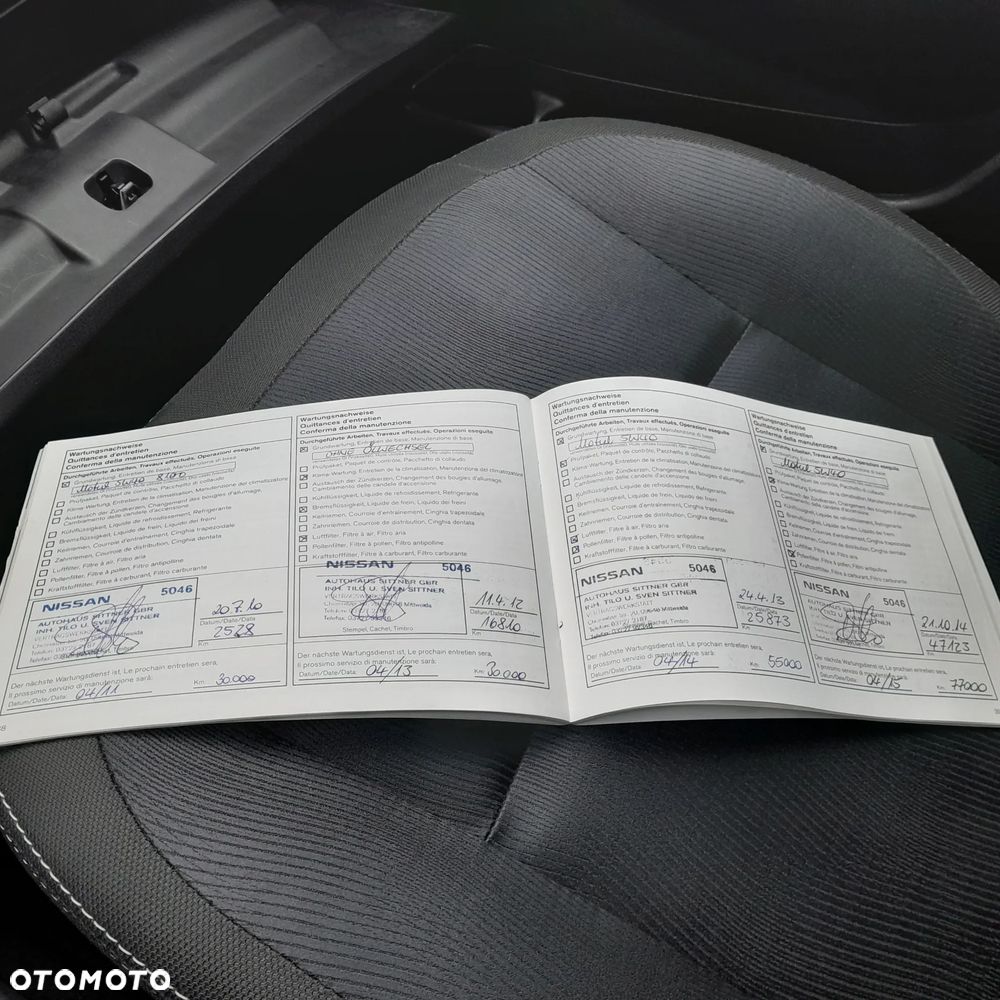 Wartungsnachweise
Quittances d'entretien
Conferma della manutenzione
Durchgeführte Arbeiten, Travaux effectués, Operazioni eseguite
Grundwartung, Entretien de base, Manutenzione di base
Motul 5W40 8100
Prüfpaket, Paquet de contrôle, Pacchetto di collaudo
Klima-Wartung, Entretien de la climatisation, Manutenzione del climatizzatore
Austausch der Zündkerzen, Changement des bougies d'allumage,
Cambiamento delle candele d'accensione
Kühlflüssigkeit, Liquide de refroidissement, Refrigerante
Bremsflüssigkeit, Liquide de frein, Liquido dei freni
Keilriemen, Courroie d'entraînement, Cinghia trapezoidale
Zahnriemen, Courroie de distribution, Cinghia dentata
Luftfilter, Filtre à air, Filtro aria
Pollenfilter, Filtre à pollen, Filtro antipolline
Kraftstofffilter, Filtre à carburant, Filtro carburante
NISSAN 5046
AUTOHAUS SITTNER GBR
INH. TILO U. SVEN SITTNER
20.7.10
Datum/Date/Data
2528
Km
Der nächste Wartungsdienst ist, Le prochain entretien sera,
Il prossimo servizio di manutenzione sarà:
Datum/Date/Data: 04/11 Km: 30.000
Wartungsnachweise
Quittances d'entretien
Conferma della manutenzione
Durchgeführte Arbeiten, Travaux effectués, Operazioni eseguite
Grundwartung, Entretien de base, Manutenzione di base
OHNE ÖLWECHSEL
Prüfpaket, Paquet de contrôle, Pacchetto di collaudo
Klima-Wartung, Entretien de la climatisation, Manutenzione del climatizzatore
Austausch der Zündkerzen, Changement des bougies d'allumage,
Cambiamento delle candele d'accensione
Kühlflüssigkeit, Liquide de refroidissement, Refrigerante
Bremsflüssigkeit, Liquide de frein, Liquido dei freni
Keilriemen, Courroie d'entraînement, Cinghia trapezoidale
Zahnriemen, Courroie de distribution, Cinghia dentata
Luftfilter, Filtre à air, Filtro aria
Pollenfilter, Filtre à pollen, Filtro antipolline
Kraftstofffilter, Filtre à carburant, Filtro carburante
NISSAN 5046
AUTOHAUS SITTNER GBR
INH. TILO U. SVEN SITTNER
11.4.12
Datum/Date/Data
16810
Km
Stempel, Cachet, Timbro
Der nächste Wartungsdienst ist, Le prochain entretien sera,
Il prossimo servizio di manutenzione sarà:
Datum/Date/Data: 04/13 Km: 30.000
Wartungsnachweise
Quittances d'entretien
Conferma della manutenzione
Durchgeführte Arbeiten, Travaux effectués, Operazioni eseguite
Grundwartung, Entretien de base, Manutenzione di base
Motul 5W40
Prüfpaket, Paquet de contrôle, Pacchetto di collaudo
Klima-Wartung, Entretien de la climatisation, Manutenzione del climatizzatore
Austausch der Zündkerzen, Changement des bougies d'allumage,
Cambiamento delle candele d'accensione
Kühlflüssigkeit, Liquide de refroidissement, Refrigerante
Bremsflüssigkeit, Liquide de frein, Liquido dei freni
Keilriemen, Courroie d'entraînement, Cinghia trapezoidale
Zahnriemen, Courroie de distribution, Cinghia dentata
Luftfilter, Filtre à air, Filtro aria
Pollenfilter, Filtre à pollen, Filtro antipolline
Kraftstofffilter, Filtre à carburant, Filtro carburante
NISSAN 5046
AUTOHAUS SITTNER GBR
INH. TILO U. SVEN SITTNER
24.4.13
Datum/Date/Data
25873
Km
Der nächste Wartungsdienst ist, Le prochain entretien sera,
Il prossimo servizio di manutenzione sarà:
Datum/Date/Data: 04/14 Km: 55000
Wartungsnachweise
Quittances d'entretien
Conferma della manutenzione
Durchgeführte Arbeiten, Travaux effectués, Operazioni eseguite
Grundwartung, Entretien de base, Manutenzione di base
Motul 5W40
NISSAN 5046
21.10.14
Datum/Date/Data
47123
Km
Der nächste Wartungsdienst ist, Le prochain entretien sera,
Il prossimo servizio di manutenzione sarà:
Datum/Date/Data: 04/15 Km: 77000
OTOMOTO